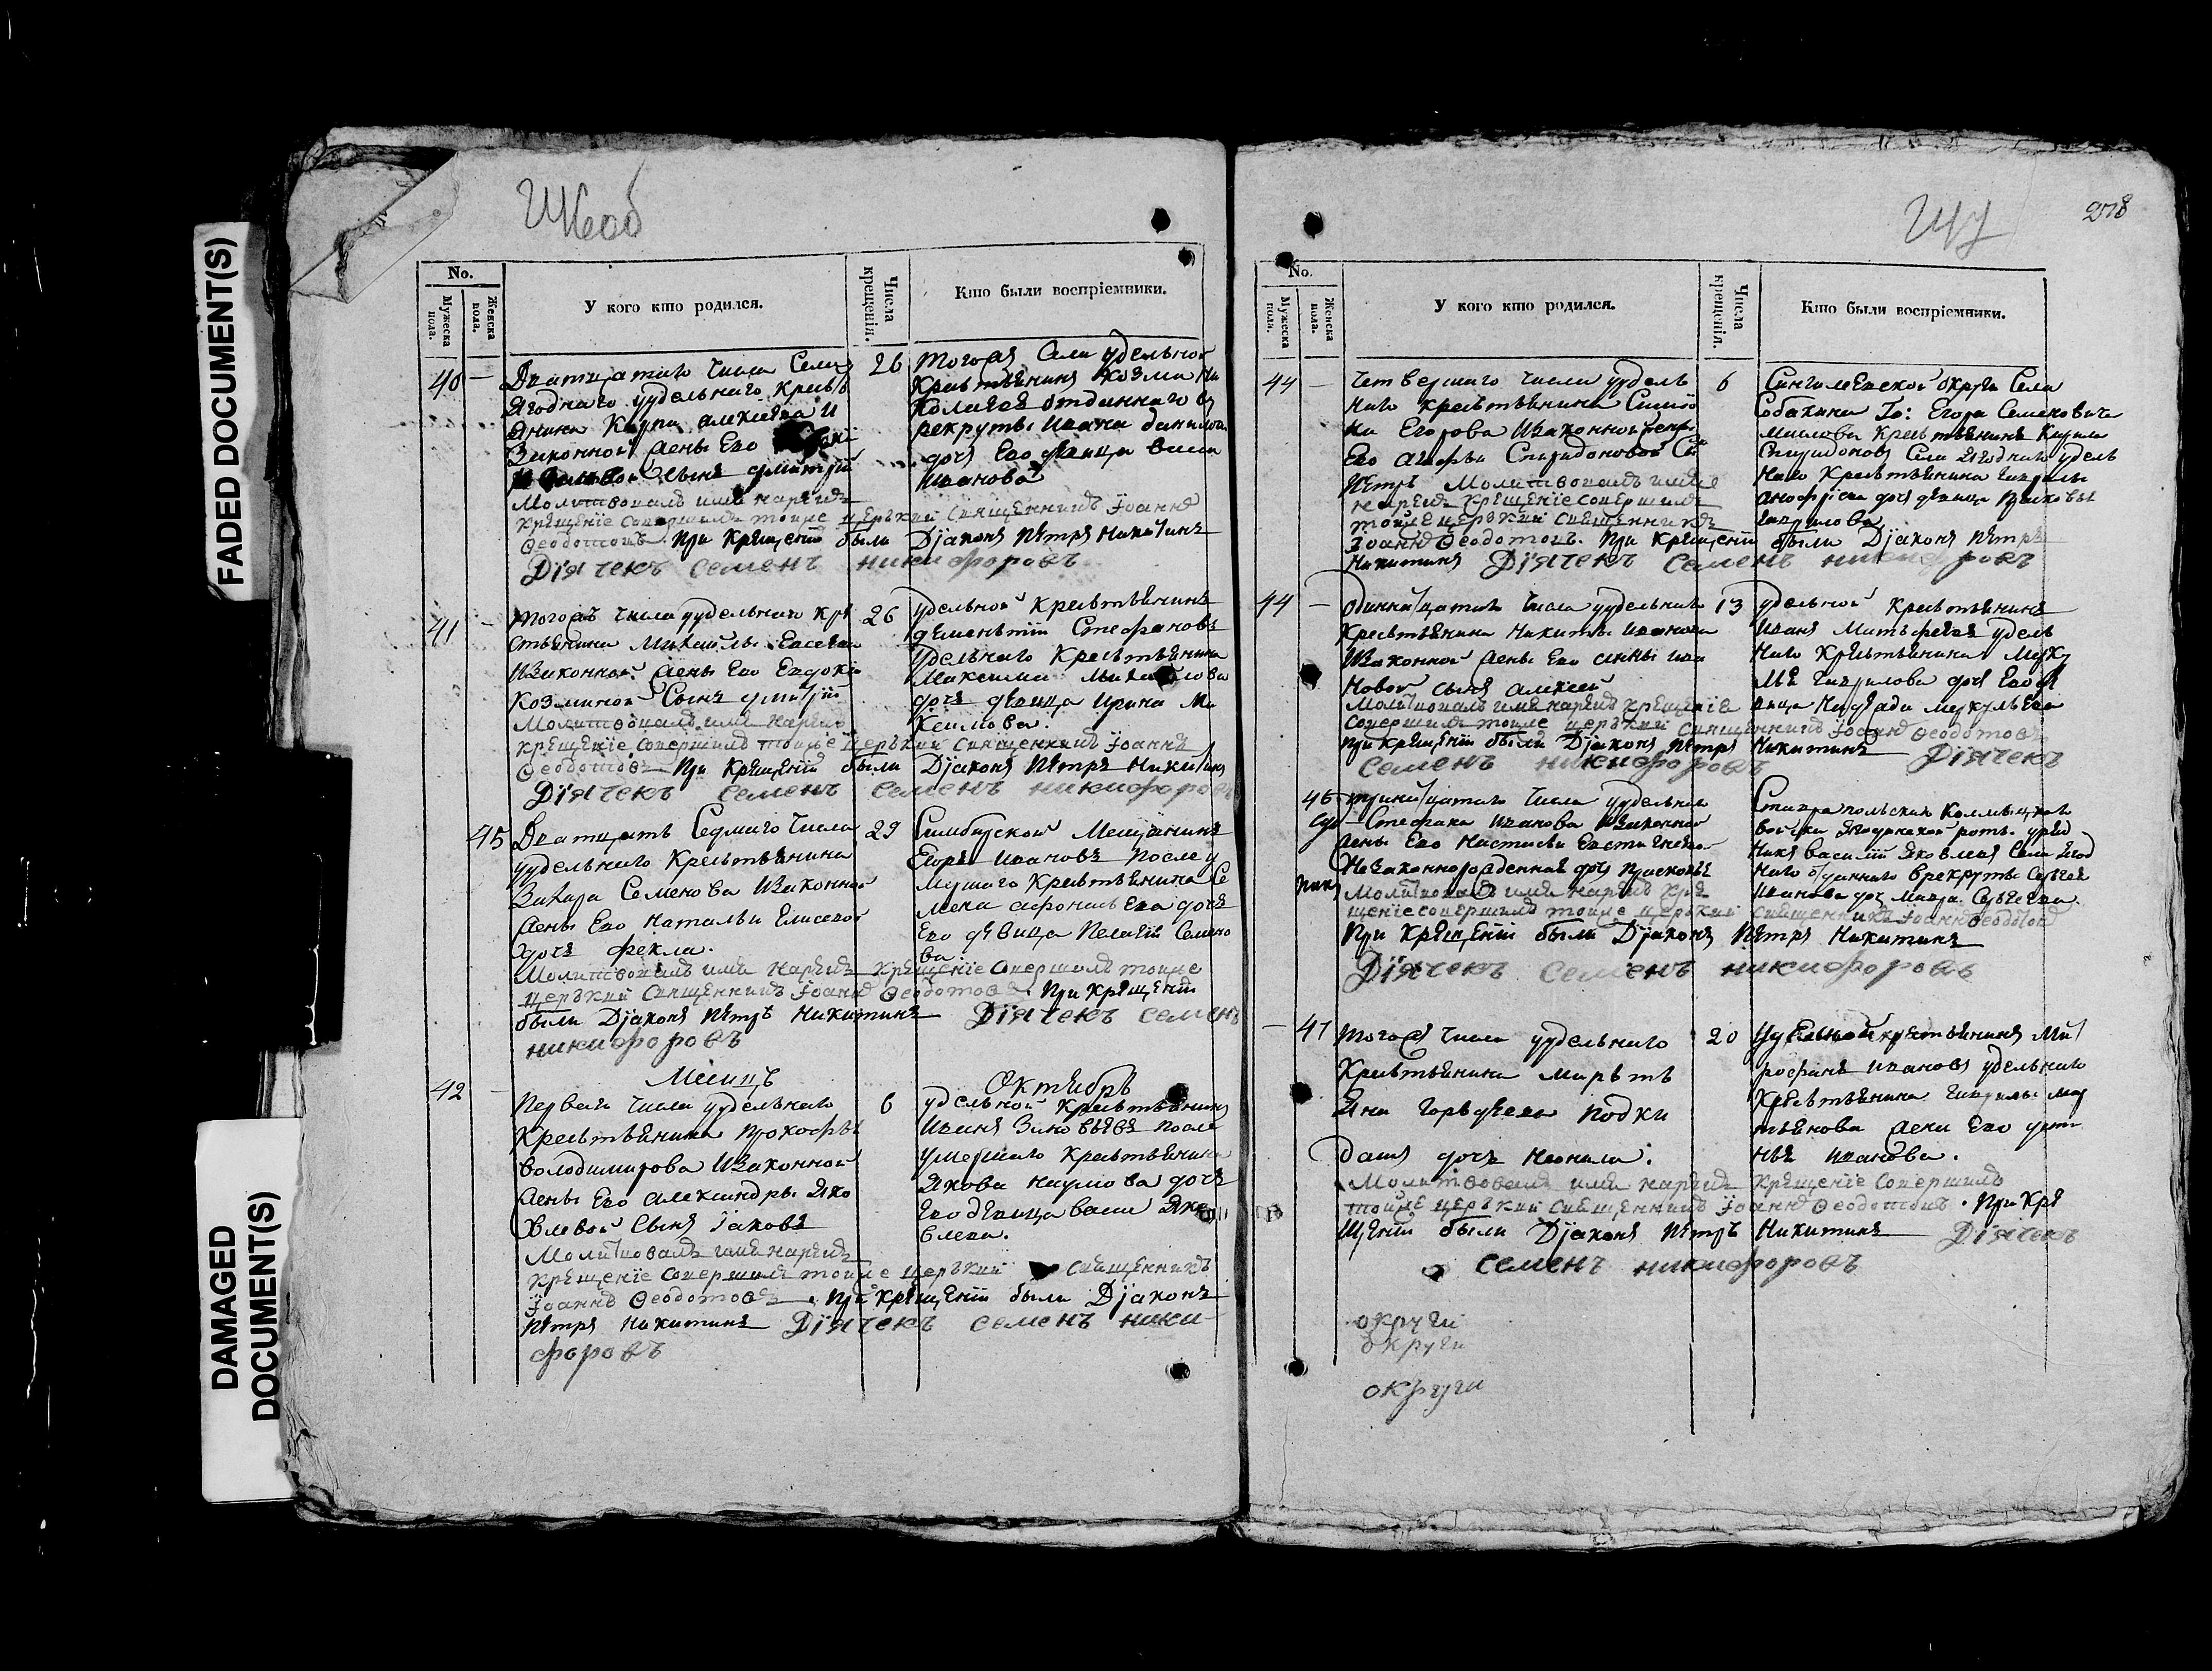 FADED DOCUMENT(S)
DAMAGED
DOCUMENT(S)
278
No.
Мужеска пола.
Женска пола.
У кого кто родился.
Числа крещенія.
Кто были воспріемники.
40 —
Села
Ягоднаго удельнаго кресть
янина Карпа Алексеева и
Законной жены Его
Сынъ Дмитрій
Молитвовалъ имя нарекъ
крещеніе совершилъ тойже церкви священникъ Іоаннъ
Ѳеодотовъ. При крещеніи были Діаконъ Петръ Никитинъ
Діячекъ Семенъ никифоровъ
26
Тогожъ Села удельной
Крестьянинъ Козма Ни
колаевъ отданнаго в
рекруты Ивана Данилова
дочь Его девица Васса
Иванова
41 —
Тогожъ числа удельнаго кре
стьянина Михаилы Евсеева
Изаконной жены Его Евдокіи
Козминой Сынъ Дмитрій
Молитвовалъ имя нарекъ
крещеніе совершилъ тойже церкви священникъ Іоаннъ
Ѳеодотовъ При крещеніи были Діаконъ Петръ Никитинъ
Діячекъ Семенъ Семенъ никифоровъ
26
удельной крестьянинъ
Дементій Стефановъ
удельнаго Крестьянина
Максима Михайлова
дочь девица Ирина Ма
ксимова.
45
Дватцать Седмаго числа
удельнаго Крестьянина
Захара Семенова Изаконной
жены Его Натальи Елисеевой
дочь Фекла.
Молитвовалъ имя нарекъ крещеніе совершилъ тойже
церкви священникъ Іоаннъ Ѳеодотовъ. При крещеніи
были Діаконъ Петръ Никитинъ Діячекъ Семенъ
никифоровъ
29
Симбирской Мещанинъ
Егоръ Ивановъ после у
мершаго Крестьянина Се
мена Афонасьева дочь
Его девица Пелагія Семено
ва.
Месяцъ Октябрь
42 —
Перваго числа удельнаго
Крестьянина Прокофья
Володимирова Изаконной
жены Его Александры Яко
влевой Сынъ Іаковъ
Молитвовалъ имя нарекъ
крещеніе совершилъ тойже церкви священникъ
Іоаннъ Ѳеодотовъ. При крещеніи были Діаконъ
Петръ Никитинъ Діячекъ Семенъ ники-
форовъ
6
удельной Крестьянинъ
Иванъ Зиновьевъ после
умершаго Крестьянина
Якова Наумова дочь
Его девица Васса Яко
влева.
No.
Мужеска пола.
Женска пола.
У кого кто родился.
Числа крещенія.
Кто были воспріемники.
44 —
Четвертаго числа удель
наго крестьянина Симіо
на Егорова Изаконной жены
Его Агафьи Спиридоновой Сы
Петръ Молитвовалъ имя
нарекъ крещеніе совершилъ
тойже церкви священникъ
Іоаннъ Ѳеодотовъ. При крещеніи были Діаконъ Петръ
Никитинъ Діячекъ Семенъ никифоровъ
6
округи Села
Собакина Го: Егора Семеновича
Маслова Крестьянинъ
Спиридоновъ Села Ягоднаго удель
наго Крестьянина Гаврилы
дочь девица
Гаврилова
44 —
числа удельнаго
Крестьянина Никиты Иванова
Изаконной жены Его Анны Ива
новой сынъ Алексей
Молитвовалъ имя нарекъ крещеніе
совершилъ тойже церкви священникъ Іоаннъ Ѳеодотовъ
При крещеніи были Діаконъ Петръ Никитинъ Діячекъ
Семенъ никифоровъ
13
удельной крестьянинъ
Иванъ Матьфеевъ удель
наго Крестьянина Мерку
лья Гаврилова дочь Его де
вица Меркульева
46
числа удельнаго
Стефана Иванова Изаконной
жены Его Настасьи
Незаконнорожденная дочь Прасковья
Молитвовалъ имя нарекъ кре
щеніе совершилъ тойже церкви священникъ Іоаннъ Ѳеодотовъ
При крещеніи были Діаконъ Петръ Никитинъ
Діячекъ Семенъ никифоровъ
Ставропольскаго Калмыцкаго
войска роты уряд
никъ Василій Яковлевъ Села Ягод
наго отданнаго врекруты Сергея
Иванова дочь Мавра Сергеева.
— 47
Тогожъ числа удельнаго
Крестьянина Марть
яна Гордеева подки
дышъ дочь Неонила.
Молитвовалъ имя нарекъ крещеніе совершилъ
тойже церкви священникъ Іоаннъ Ѳеодотовъ. При кре
щеніи были Діаконъ Петръ Никитинъ Діячекъ
Семенъ никифоровъ
20
Удельной крестьянинъ Мит
рофанъ Ивановъ удельнаго
Крестьянина Гаврилы Мар
тьянова жена Его
Иванова.
округи
округи
округи